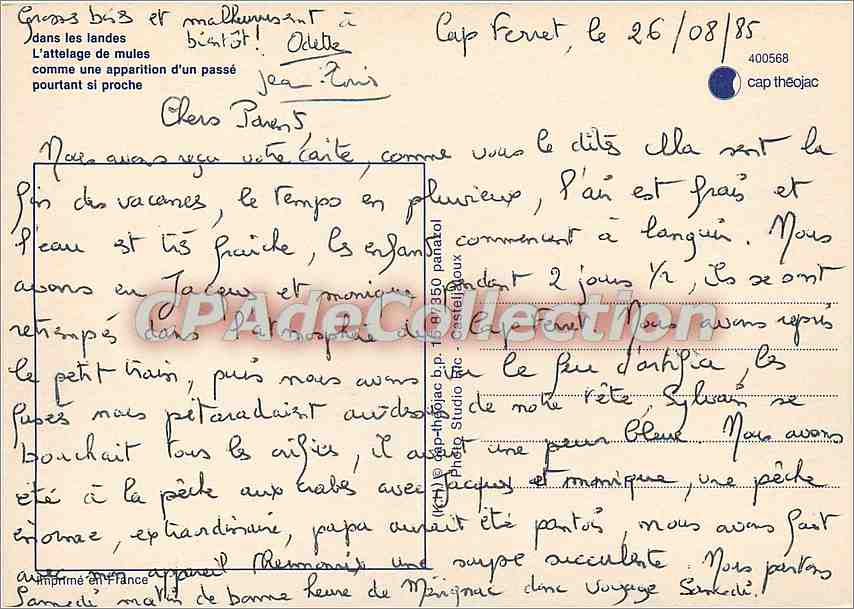 Gross bais et malheureusement à
bientôt! Odette
Jean-Louis
dans les landes
L'attelage de mules
comme une apparition d'un passé
pourtant si proche
Cap Ferret, le 26/08/85
400568
cap théojac
Chers Parents,
Nous avons reçu votre carte, comme vous le dites cela sent la
fin des vacances, le temps en pluvieux, l'air est frais et
l'eau est très fraîche, les enfants commencent à languir. Nous
avons eu Jacques et monique pendant 2 jours 1/2, ils se sont
retrempés dans l'atmosphère du Cap Ferret. Nous avons repris
le petit train, puis nous avons vu le feu d'artifice, les
fusés nous pétaradaient au dessus de notre tête, Sylvain se
bouchait tous les orifices, il avait une peur bleue. Nous avons
été à la pêche aux crabes avec Jacques et monique, une pêche
énorme, extraordinaire, papa aurait été pantois, nous avons fait
avec mon appareil Thermomix une soupe succulente. Nous partons
Samedi matin de bonne heure de Mérignac donc voyage Samedi.
imprimé en France
(K.H) © cap-théojac b.p. 16-87350 panazol
Photo Studio Eric - Casteljaloux
CPAdeCollection